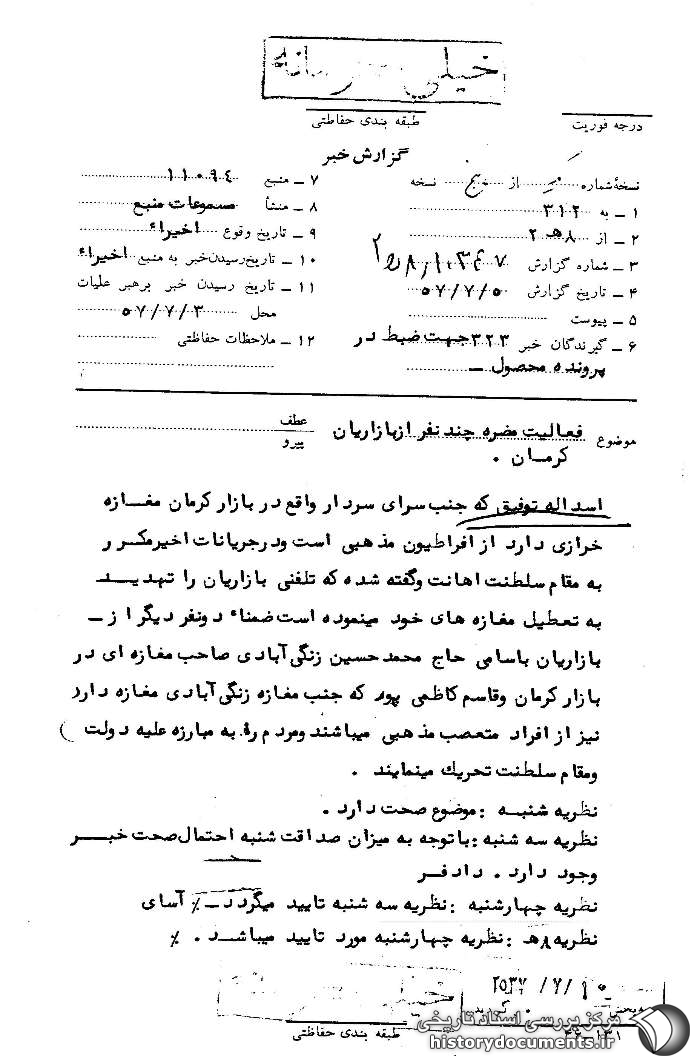 خیلی محرمانه
درجه فوریت
طبقه بندی حفاظتی
گزارش خبر
نسخهٔ شماره از پنج نسخه
۱ ـ به ۳۱۲
۲ ـ از ۸هـ۲
۳ ـ شماره گزارش
۴ ـ تاریخ گزارش ۵۷/۷/۵
۵ ـ پیوست
۶ ـ گیرندگان خبر ۳۲۳ جهت ضبط در
پرونده محصول ـ
۷ ـ منبع ۱۱۰۹۴
۸ ـ منشأ مسموعات منبع
۹ ـ تاریخ وقوع اخیراء
۱۰ ـ تاریخ رسیدن خبر به منبع اخیراء
۱۱ ـ تاریخ رسیدن خبر برهبر عملیات
محل ۵۷/۷/۳
۱۲ ـ ملاحظات حفاظتی
موضوع فعالیت مضره چند نفر از بازاریان
کرمان .
عطف
پیرو
اسداله توفیق که جنب سرای سردار واقع در بازار کرمان مغازه
خرازی دارد از افراطیون مذهبی است ودرجریانات اخیرمکرر
به مقام سلطنت اهانت وگفته شده که تلفنی بازاریان را تهدید
به تعطیل مغازه های خود مینموده است ضمناء دونفر دیگر از ـ
بازاریان باسامی حاج محمدحسین زنگی آبادی صاحب مغازه ای در
بازار کرمان وقاسم کاظمی پور که جنب مغازه زنگی آبادی مغازه دارد
نیز از افراد متعصب مذهبی میباشند ومردم را به مبارزه علیه دولت
ومقام سلطنت تحریك مینمایند .
نظریه شنبه : موضوع صحت دارد .
نظریه سه شنبه : باتوجه به میزان صداقت شنبه احتمال صحت خبر
وجود دارد . دادفر
نظریه چهارشنبه : نظریه سه شنبه تایید میگردد ـ٪ آسای
نظریه ۸هـ : نظریه چهارشنبه مورد تایید میباشد . ٪
طبقه بندی حفاظتی
مرکز بررسی اسناد تاریخی
historydocuments.ir